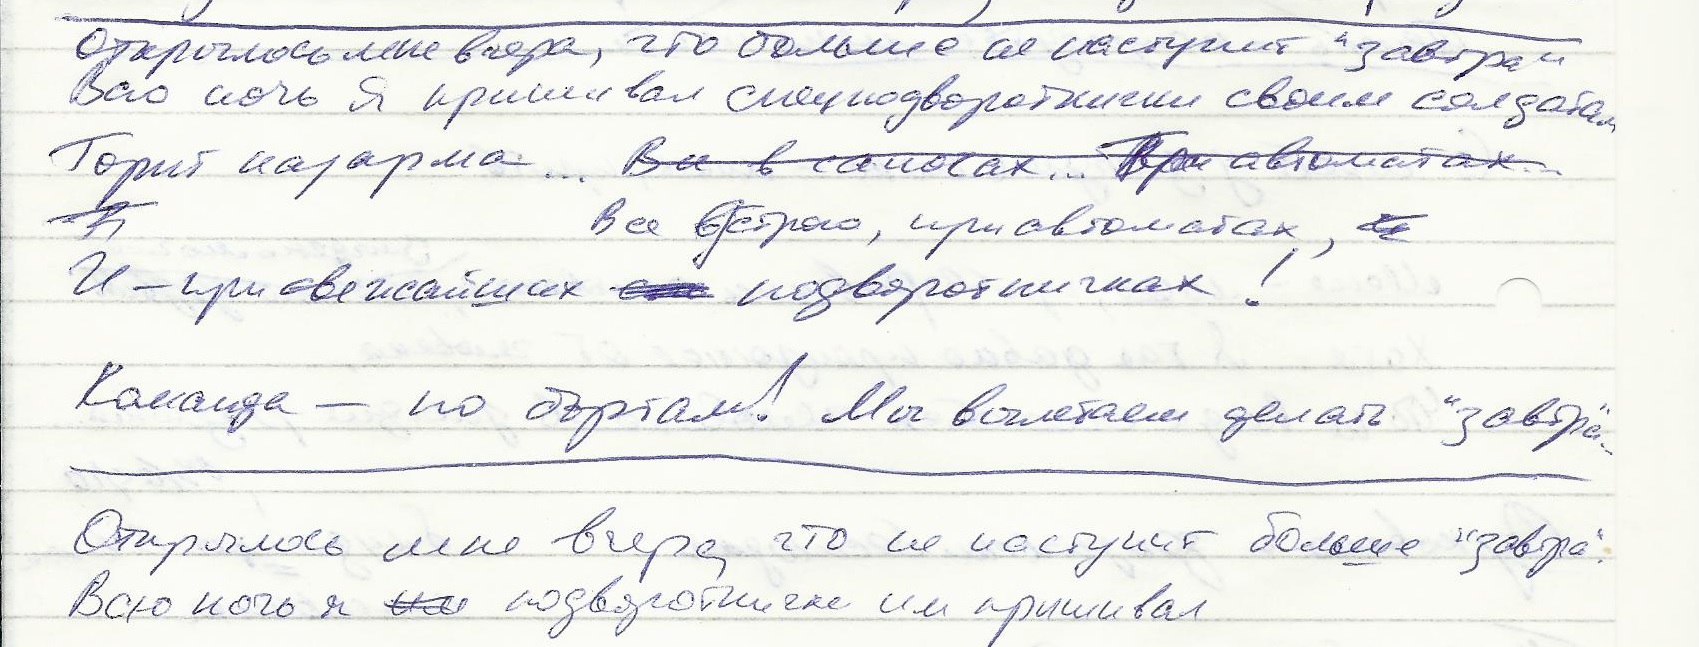 Открылось мне вчера, что больше не наступит "завтра"
Всю ночь я пришивал подворотнички своим солдатам
Горит казарма... Все в сапогах... При автоматах...
Все в строю, при автоматах,
И – при свежайших подворотничках!
Команда – по бортам! Мы вылетаем делать "завтра"..
Открылось мне вчера, что не наступит больше "завтра".
Всю ночь я подворотнички им пришивал